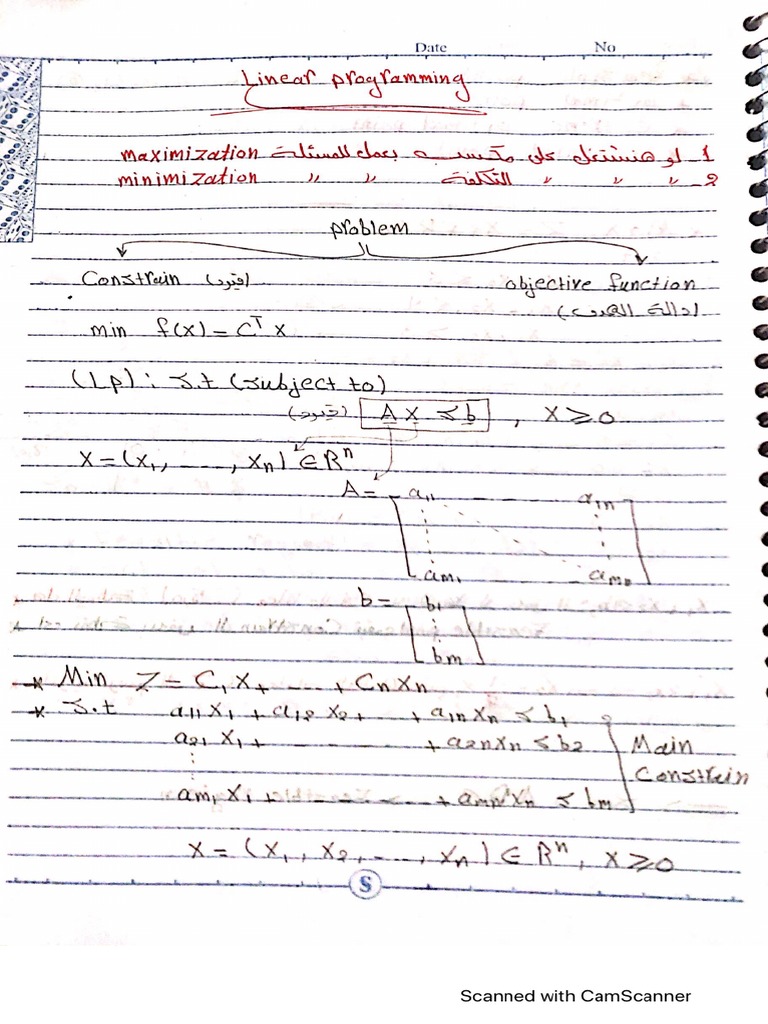 Date No
Linear programming
1- لو هنشتغل على مكسب بعمل للمسئلة maximization
2- " " " التكلفة " " minimization
problem
Constrain (قيود) objective function
(دالة الهدف)
min f(x) = Cᵀ x
(Lp) : S.t (subject to)
(قيود) A x ≤ b , x ≥ 0
x = (x₁, ----, xₙ) ∈ Rⁿ
A = [ a₁₁ - - - a₁ₙ
⋮ ⋮
aₘ₁ aₘₙ ]
b = [ b₁
⋮
bm ]
* Min Z = C₁ x + --- + Cₙ xₙ
* S.t a₁₁ x₁ + a₁₂ x₂ + --- + a₁ₙ xₙ ≤ b₁
a₂₁ x₁ + ------ + a₂ₙ xₙ ≤ b₂ Main
⋮ Constrain
aₘ₁ x₁ + - - - - + aₘₙ xₙ ≤ bm
x = (x₁, x₂, ---, xₙ) ∈ Rⁿ, x ≥ 0
S
Scanned with CamScanner